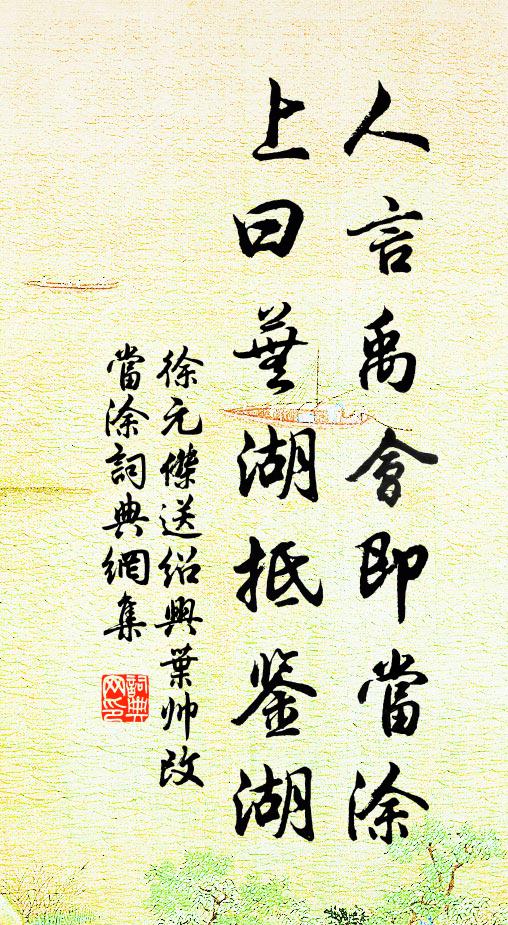 人言禹會即當涂
上曰蕪湖抵鉴湖
徐元傑送绍興葉帅改
當涂詞典網集
詞典网印